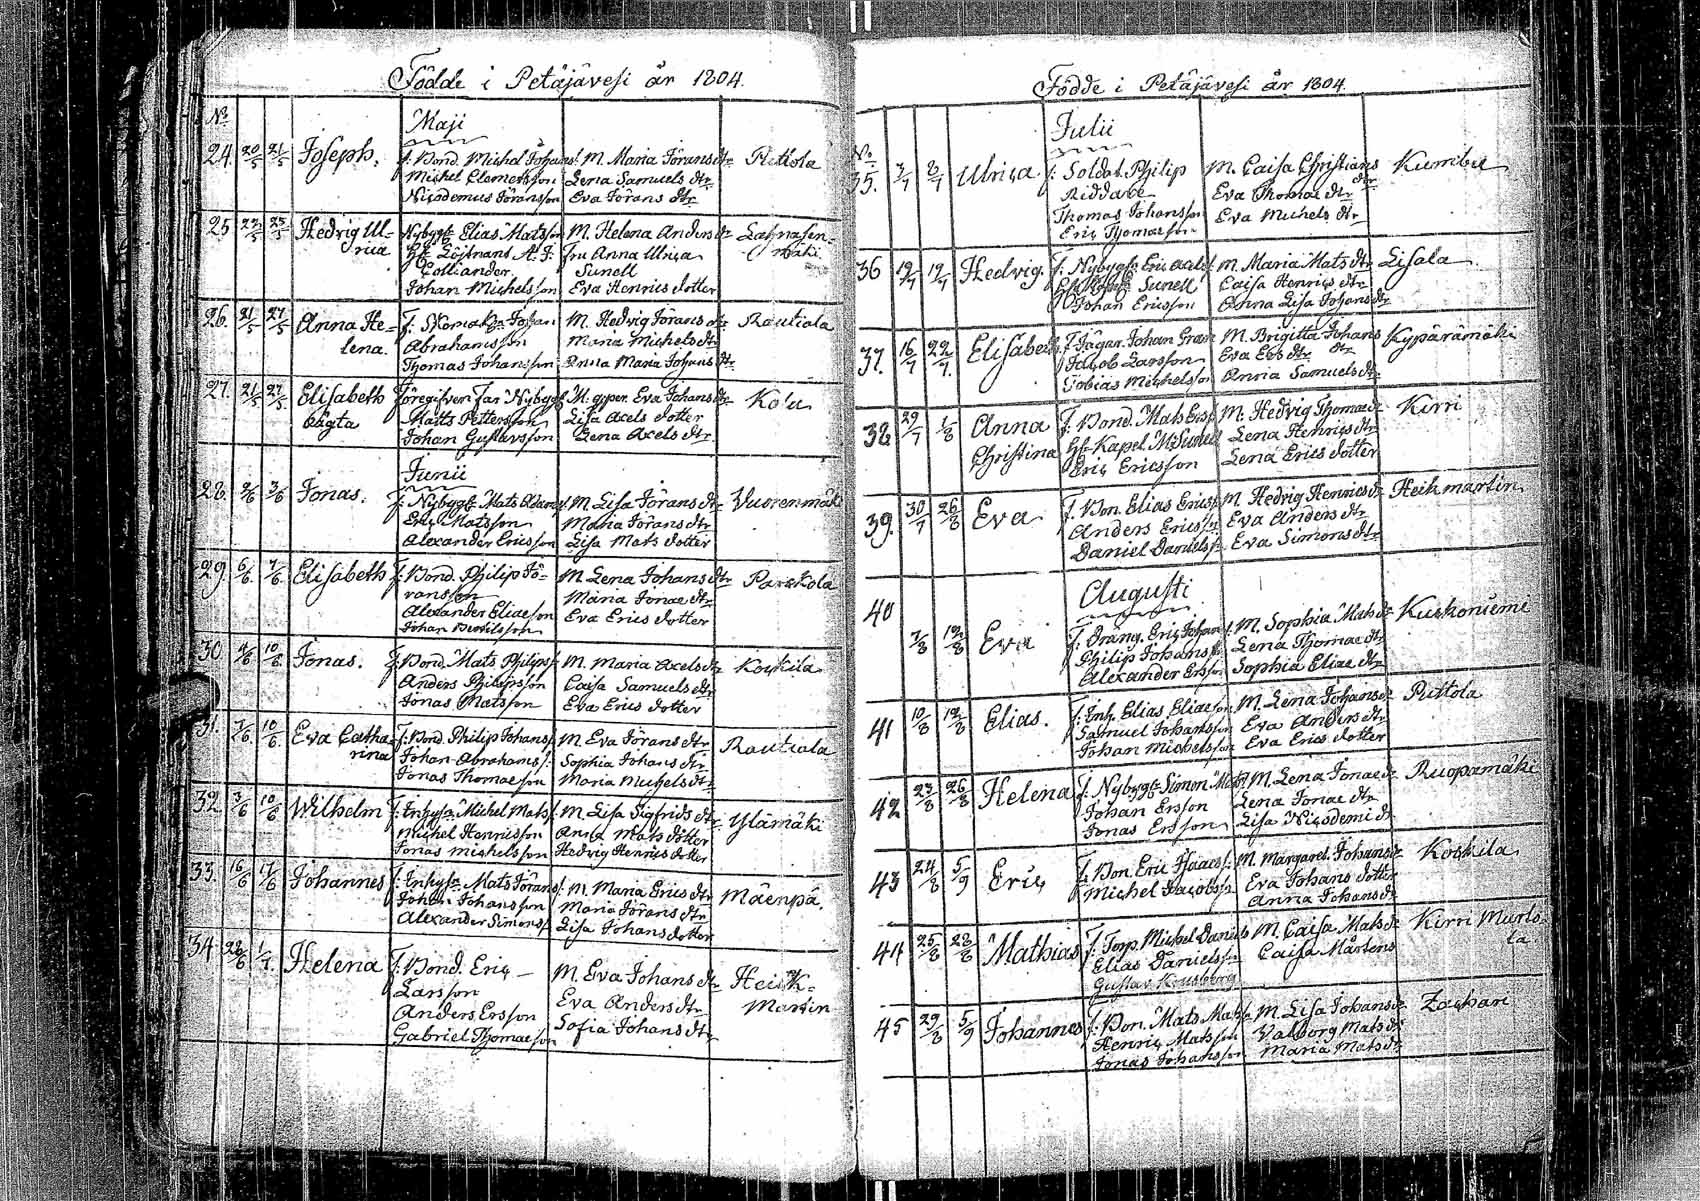 Födde i Petäjävesi år 1804.
No
Maji
24. 20/5 21/5 Joseph. f: Bond. Michel Johans: M. Maria Jörans dtr Piettola
Michel Clemetsson Lena Samuels dtr
Nicodemus Jöransson Eva Jörans dtr
25 22/5 23/5 Hedvig Ul- Nybygg: Elias Matsson M. Helena Anders dtr Lahnasen-
rica Löjtnans A. J. fru Anna Ulrica mäki
Colliander Sunell
Johan Michelsson Eva Henrics dotter
26. 21/5 27/5 Anna He- f: Johan M. Hedvig Jörans dtr Rautiala
lena. Abrahamsson Maria Michels dtr
Thomas Johansson Anna Maria Johans dtr
27. 21/5 27/5. Elisabeth föregifven far Nybygg M. Eva Johans dtr
Ägta Matts Pettersson Lisa Axels dotter
Johan Gustavsson Lena Axels dtr
Junii
28. 2/6 3/6 Jonas. f: Nybygg: Mats M. Lisa Jörans dtr Vuorenmäki
Eric Matsson Maria Jörans dtr
Alexander Ericsson Lisa Mats dotter
29. 6/6 7/6 Elisabeth f: Bond. Philip Jö- M. Lena Johans dtr
ransson Maria Jonae dtr
Alexander Eliaeson Eva Erics dotter
Johan
30 10/6 Jonas. f: Bond. Mats Philips: M. Maria Axels dtr Koskila
Anders Philipsson Caisa Samuels dtr
Jonas Matsson Eva Erics dotter
31. 7/6 10/6 Eva Catha- f: Bond. Philip Johans: M. Eva Jörans dtr Rautiala
rina Johan Abrahams: Sophia Johans dtr
Jonas Thomaeson Maria Michels dtr
32. 3/6 10/6 Wilhelm f: Inhys: Michel Mats: M. Lisa Sigfrids dtr Ylämäki
Michel Henricsson Anna Mats dotter
Jonas Michelsson Hedvig Henrics dotter
33. 16/6 17/6 Johannes f: Inhys: Mats Jörans: M. Maria Erics dtr Mäenpä.
Johan Johansson Maria Jörans dtr
Alexander Simons: Lisa Johans dotter
34 28/6 1/7. Helena f: Bond. Eric M. Eva Johans dtr Heick-
Larsson Eva Anders dtr Martin
Anders Ersson Sofia Johans dtr
Gabriel Thomaeson
Födde i Petäjävesi år 1804.
Julii
No
35. 7/7 8/7 Ulrica f: Soldat. Philip M. Caisa Christians dtr
Riddare Eva Thomae dtr
Thomas Johansson Eva Michels dtr
Eric Thomaeson
36 12/7 19/7 Hedvig. f: Nybygg: Eric Axels: M. Maria Mats dtr Lisala
Sunell Caisa Henrics dtr
Johan Ericsson Anna Lisa Johans dtr
37. 16/7 22/7. Elisabeth f: Jägar. Johan Gran M. Brigitta Johans dtr Kypärämäki
Jacob Larsson Eva
Tobias Michelsson Anna Samuels dtr
38 29/7 1/8 Anna f: Bond. Mats Ers: M. Hedvig Thomae dr Kirri
Christina Kapel. Lena Henrics dtr
Eric Ericsson Lena Erics dotter
39. 30/7 26/8 Eva f: Bon. Elias Erics: M. Hedvig Henrics dr Heikmartin
Anders Ericson Eva Anders dtr
Daniel Daniels: Eva Simons dtr
Augusti
40 7/8 12/8 Eva f: Eric Johan: M. Sophia Mats dr Kuskoniemi
Philip Johans: Lena Thomae dtr
Alexander Ersson Sophia Eliae dtr
41 10/8 12/8 Elias. f: Inh. Elias Eliaeson M. Lena Johans dr Pittola
Samuel Johansson Eva Anders dtr
Johan Michelsson Eva Erics dotter
42 23/8 26/8 Helena f: Nybygg: Simon Mats: M. Lena Jonae dr Ruopamäki
Johan Ersson Lena Jonae dtr
Jonas Ersson Lisa Nicodemi dr
43 24/8 5/9 Eric f: Bon. Eric Isaacs: M. Margaret. Johans dr Koskila
Michel Jacobs: Eva Johans dotter
Anna Johans dr
44 25/8 28/8 Mathias f: Torp. Michel Daniels: M. Caisa Mats dr Kirri Marto-
Elias Danielsson Caisa Mårtens la.
Gustav
45 29/8 5/9 Johannes f: Bon. Mats Mats: M. Lisa Johans dr Zachari
Henric Matsson Valborg Mats dr
Jonas Johansson Maria Mats dr